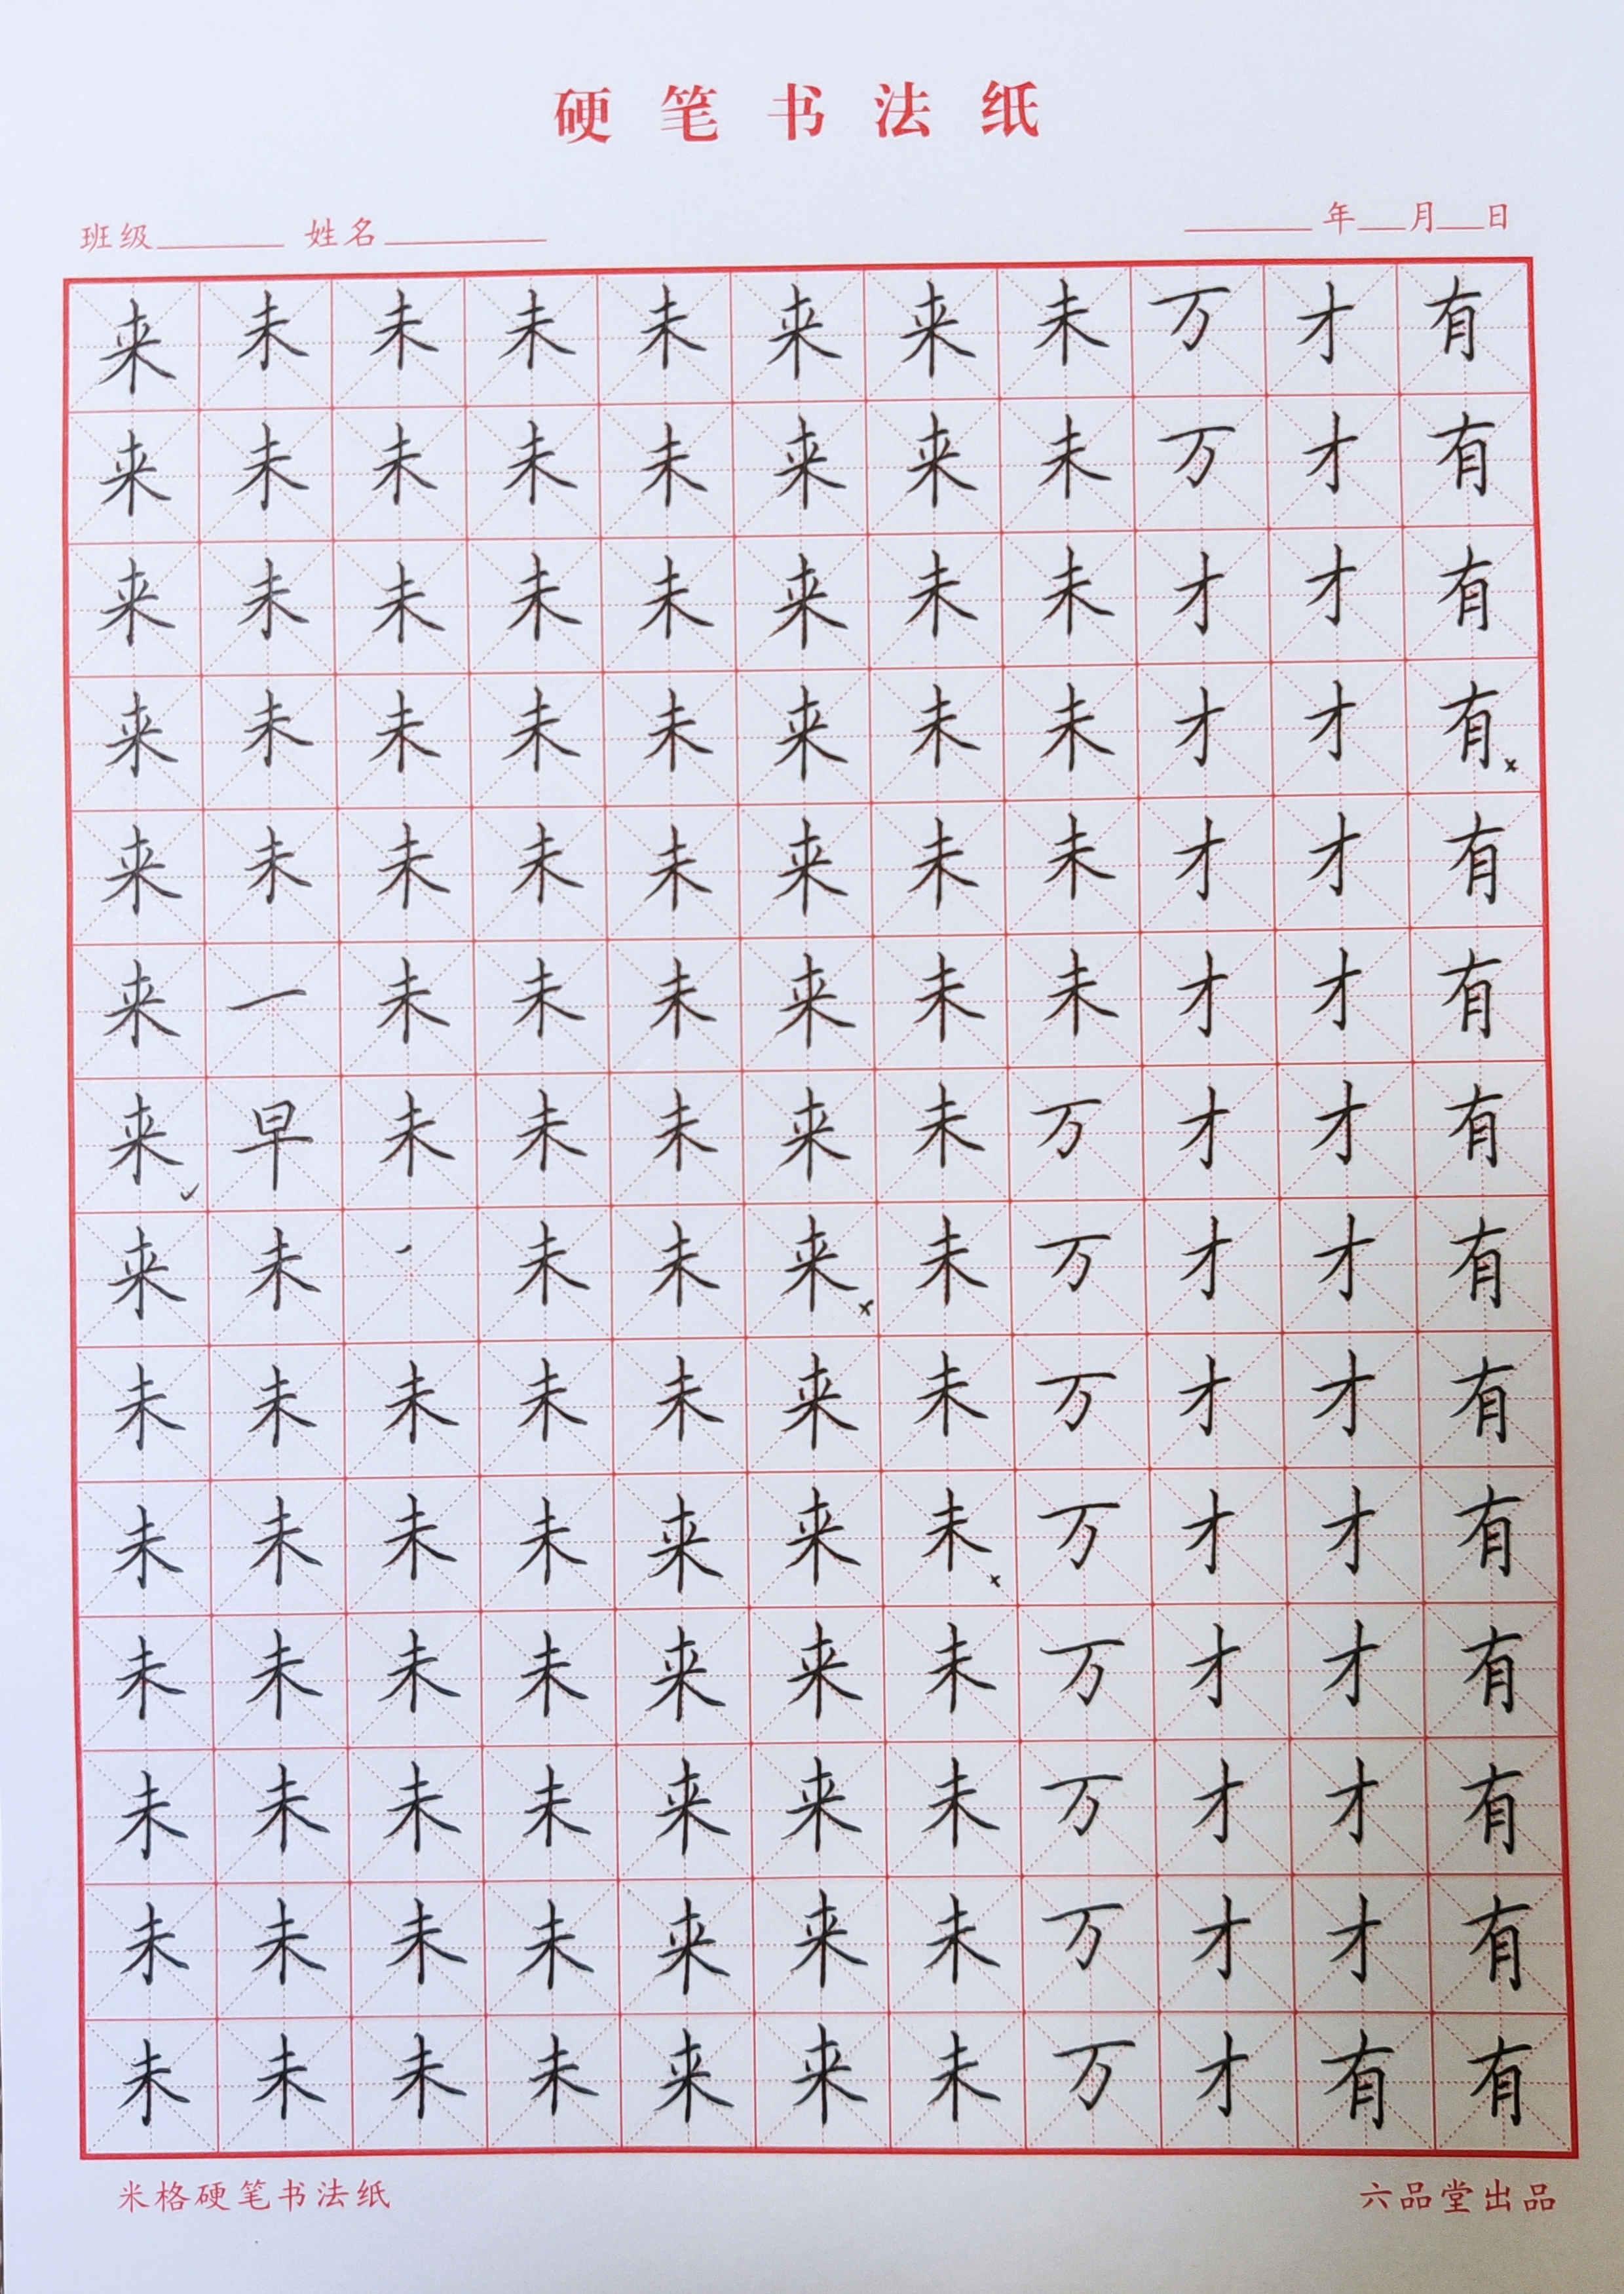 硬笔书法纸
班级 姓名 年 月 日
来 未 未 未 未 来 来 未 万 才 有
来 未 未 未 未 来 来 未 万 才 有
来 未 未 未 未 来 未 未 才 才 有
来 未 未 未 未 来 未 未 才 才 有
来 未 未 未 未 来 未 未 才 才 有
来 一 未 未 未 来 未 未 才 才 有
来 早 未 未 未 来 未 万 才 才 有
来 未 未 未 来 未 万 才 才 有
未 未 未 未 未 来 未 万 才 才 有
未 未 未 未 来 来 未 万 才 才 有
未 未 未 未 来 来 未 万 才 才 有
未 未 未 未 来 来 未 万 才 才 有
未 未 未 未 来 来 未 万 才 才 有
未 未 未 未 来 来 未 万 才 有 有
米格硬笔书法纸 六品堂出品